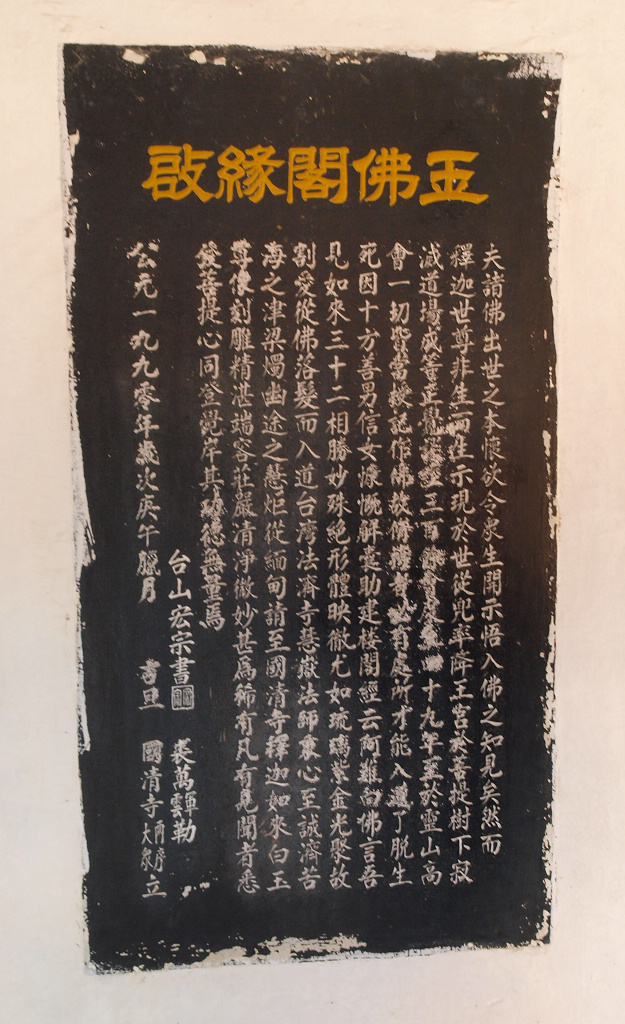 玉佛閣緣啟
夫諸佛出世之本懷欲令眾生開示悟入佛之知見矣然而
釋迦世尊非生而生示現於世從兜率降王宮於菩提樹下寂
滅道場成等正覺三百餘會十九年至於靈山高
會一切皆當授記作佛故佛有處所才能入道了脫生
死因十方善男信女慷慨解囊助建楼閣經云阿難白佛言吾
見如來三十二相勝妙殊絕形體映徹尤如琉璃紫金光聚故
割愛從佛落髮而入道台湾法濟寺慧嶽法師東心至誠濟苦
海之津梁燭幽途之慧炬從緬甸請至國清寺釋迦如來白玉
尊像刻雕精湛端容莊嚴清淨微妙甚為稀有凡有見聞者悉
發菩提心同登覺岸其功德無量焉
台山宏宗書 裘萬雲勒
公元一九九零年歲次庚午臘月 吉旦 國清寺兩序大眾立